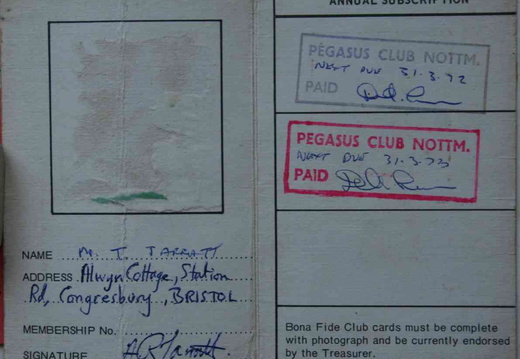 NAME M. T. TARRATT
ADDRESS Alwyn Cottage, Station
Rd, Congresbury, BRISTOL
MEMBERSHIP No.
SIGNATURE
ANNUAL SUBSCRIPTION
PEGASUS CLUB NOTTM.
NEXT DUE 31.3.72
PAID
PEGASUS CLUB NOTTM.
NEXT DUE 31.3.73
PAID
Bona Fide Club cards must be complete
with photograph and be currently endorsed
by the Treasurer.